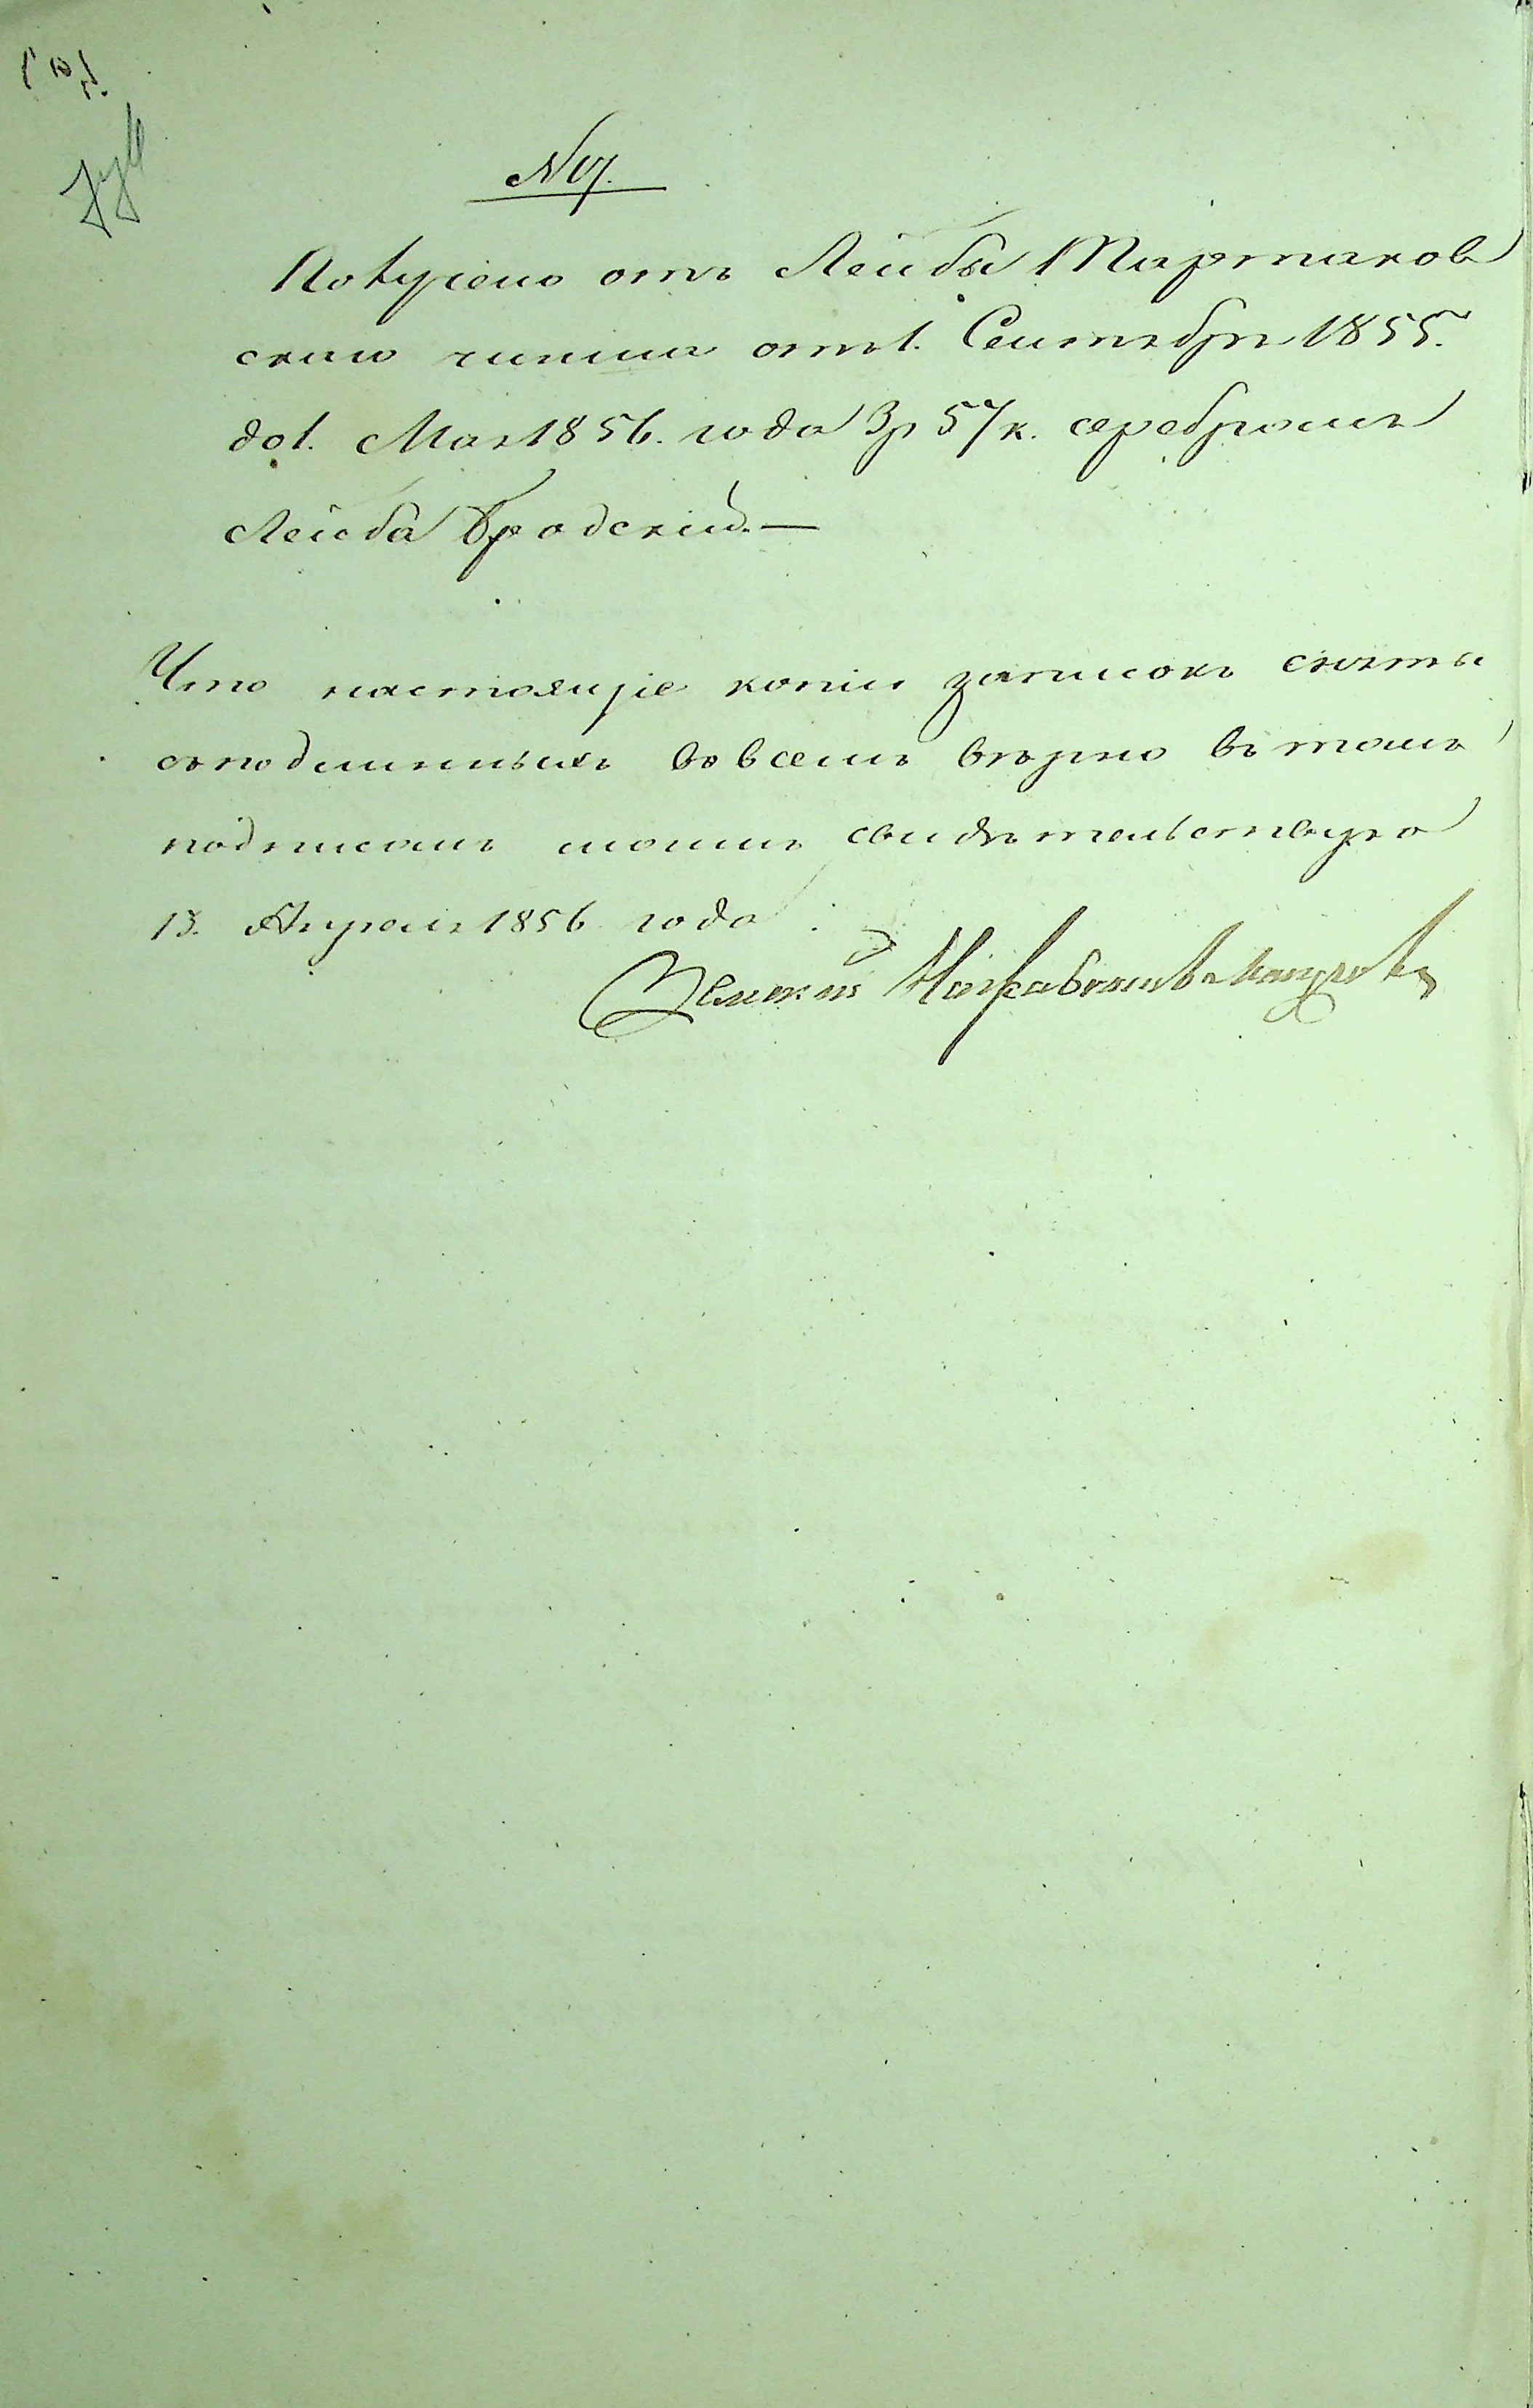 № 17.
Получено отъ Лейбы Тартаков
скаго чинша отъ 1. Сентября 1855.
до 1. Мая 1856. года 3 р 57 к. серебромъ
Лейба Бродскій. —
Что настоящіе копіи записокъ сняты
съ подлинныхъ во всемъ вѣрно въ томъ
подписомъ моимъ свидѣтельствую
13. Апреля 1856 года